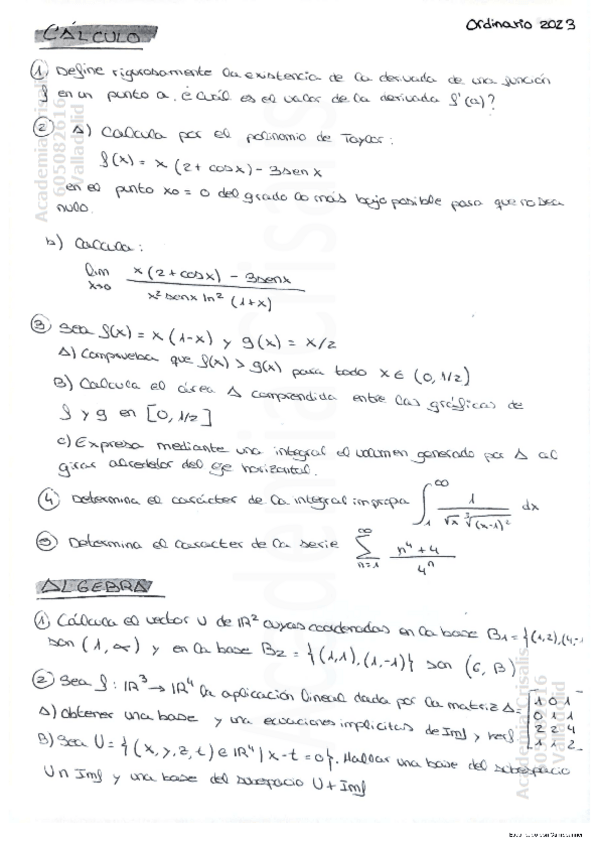 Ordinario 2023
CÁLCULO
① Define rigurosamente la existencia de la derivada de una función
f en un punto a. ¿Cuál es el valor de la derivada f'(a)?
② A) Calcula por el polinomio de Taylor:
f(x) = x (2 + cosx) - 3senx
en el punto x0 = 0 del grado lo más bajo posible para que no sea
nulo.
b) Calcula:
lim x→0 x(2+cosx) - 3senx / x² senx ln² (1+x)
③ Sea f(x) = x (1-x) y g(x) = x/2
A) Comprueba que f(x) > g(x) para todo x ∈ (0, 1/2)
B) Calcula el área A comprendida entre las gráficas de
f y g en [0, 1/2]
c) Expresa mediante una integral el volumen generado por A al
girar alrededor del eje horizontal.
④ Determina el carácter de la integral impropia ∫₁^∞ 1 / √x ∛(x-1)² dx
⑤ Determina el caracter de la serie ∑ n=1 ∞ n⁴ + 4 / 4ⁿ
ALGEBRA
① Cálcula el vector U de IR² cuyas coordenadas en la base B1 = {(1,2),(4,-
son (1, α) y en la base B2 = {(1,1), (1,-1)} son (6, B)
② Sea f: IR³ → IR⁴ la aplicación lineal dada por la matriz A = [1 0 1
0 1 1
2 2 4
1 1 2
A) Obtener una base y una ecuaciones implicitas de Imf y kerf
B) Sea U = {(x, y, z, t) ∈ IR⁴ | x - t = 0}. Hallar una base del subespacio
U ∩ Imf y una base del subespacio U + Imf
Academia Crisalis
605082616
Valladolid
Academia Crisalis
Academia Crisalis
605082616
Valladolid